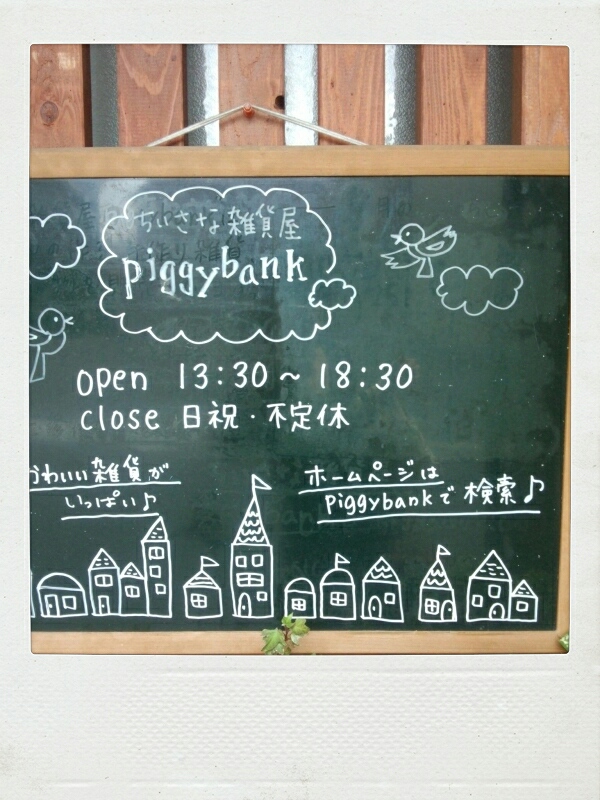 ちいさな雑貨屋
piggybank
open 13:30～18:30
close 日祝・不定休
かわいい雑貨が
いっぱい♪
ホームページは
piggybankで検索♪